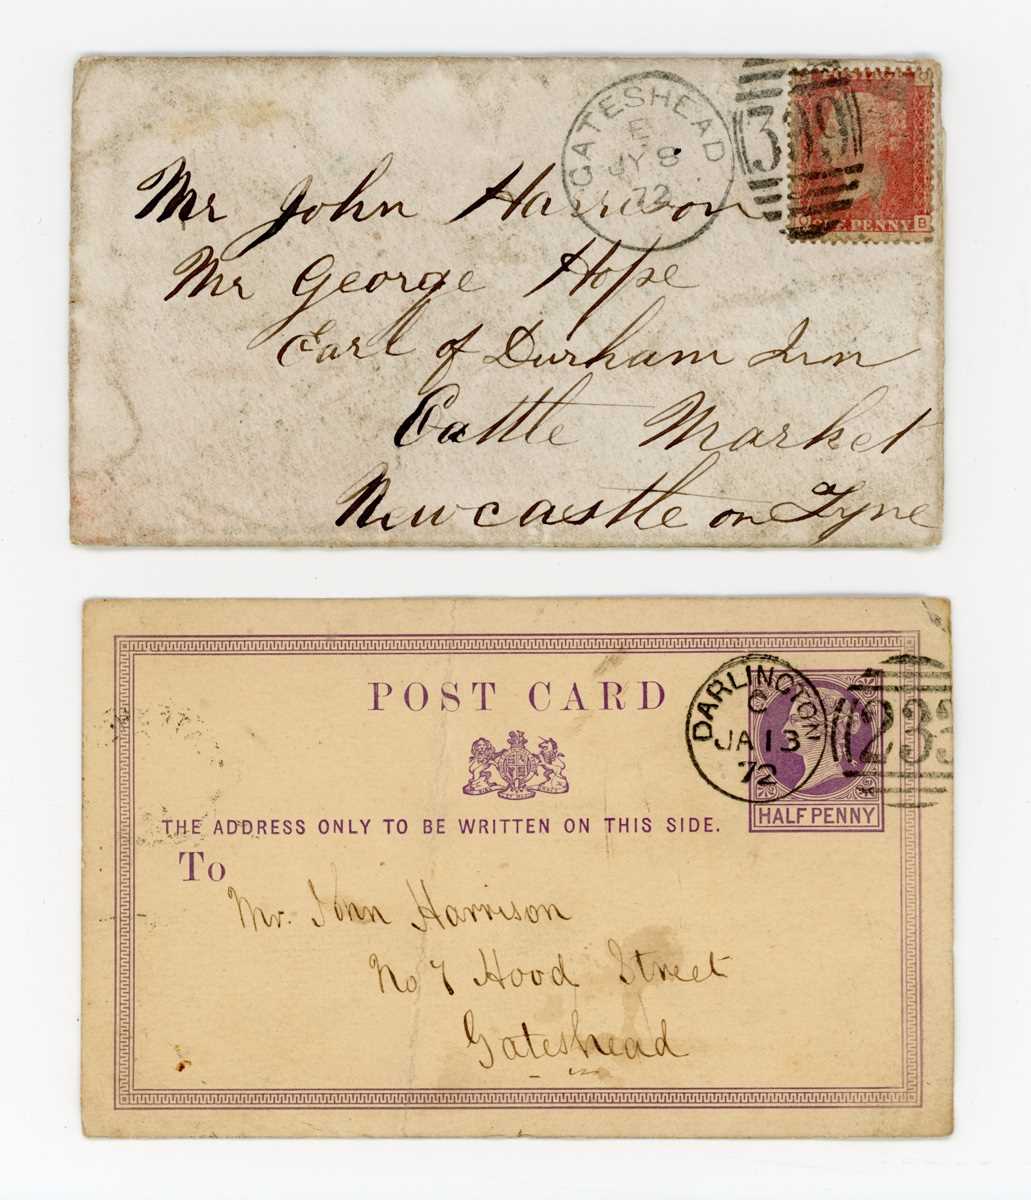 GATESHEAD
E
JY 8
73
POSTAGE
ONE PENNY
B
Mr John Harrison
Mr George Hope
Earl of Durham Inn
Cattle Market
Newcastle on Tyne
POST CARD
DARLINGTON
C
JA 13
72
233
HALF PENNY
THE ADDRESS ONLY TO BE WRITTEN ON THIS SIDE.
To
Mr. John Harrison
No 7 Hood Street
Gateshead